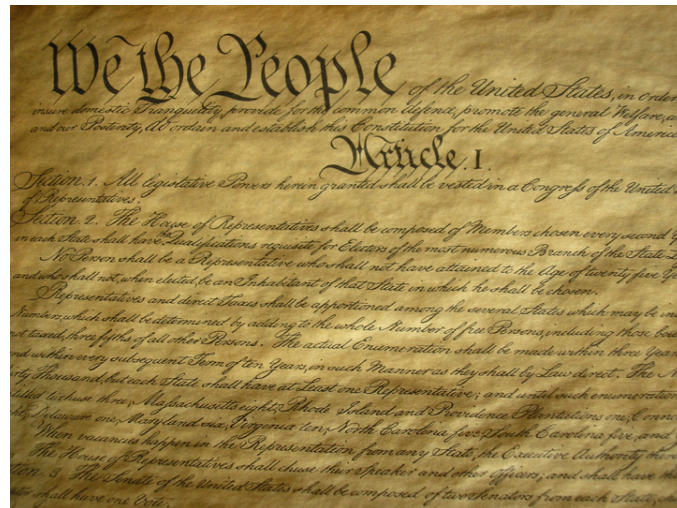 We the People of the United States, in Order
insure domestic Tranquility, provide for the common defence, promote the general Welfare, a
and our Posterity, do ordain and establish this Constitution for the United States of America
Article. I.
Section. 1. All legislative Powers herein granted shall be vested in a Congress of the United
of Representatives.
Section. 2. The House of Representatives shall be composed of Members chosen every second Y
in each State shall have Qualifications requisite for Electors of the most numerous Branch of the State L
No Person shall be a Representative who shall not have attained to the Age of twenty five Y
and who shall not, when elected, be an Inhabitant of that State in which he shall be chosen.
Representatives and direct Taxes shall be apportioned among the several States which may be in
Numbers, which shall be determined by adding to the whole Number of free Persons, including those bou
not taxed, three fifths of all other Persons. The actual Enumeration shall be made within three Year
nd within every subsequent Term of ten Years, in such Manner as they shall by Law direct. The N
rty Thousand, but each State shall have at Least one Representative; and until such enumeration
titled to chuse three, Massachusetts eight, Rhode Island and Providence Plantations one, Conne
ht, Delaware one, Maryland six, Virginia ten, North Carolina five, South Carolina five, and
When vacancies happen in the Representation from any State, the Executive Authority there
The House of Representatives shall chuse their Speaker and other Officers; and shall have the
tion. 3. The Senate of the United States shall be composed of two Senators from each State, cho
tor shall have one Vote.